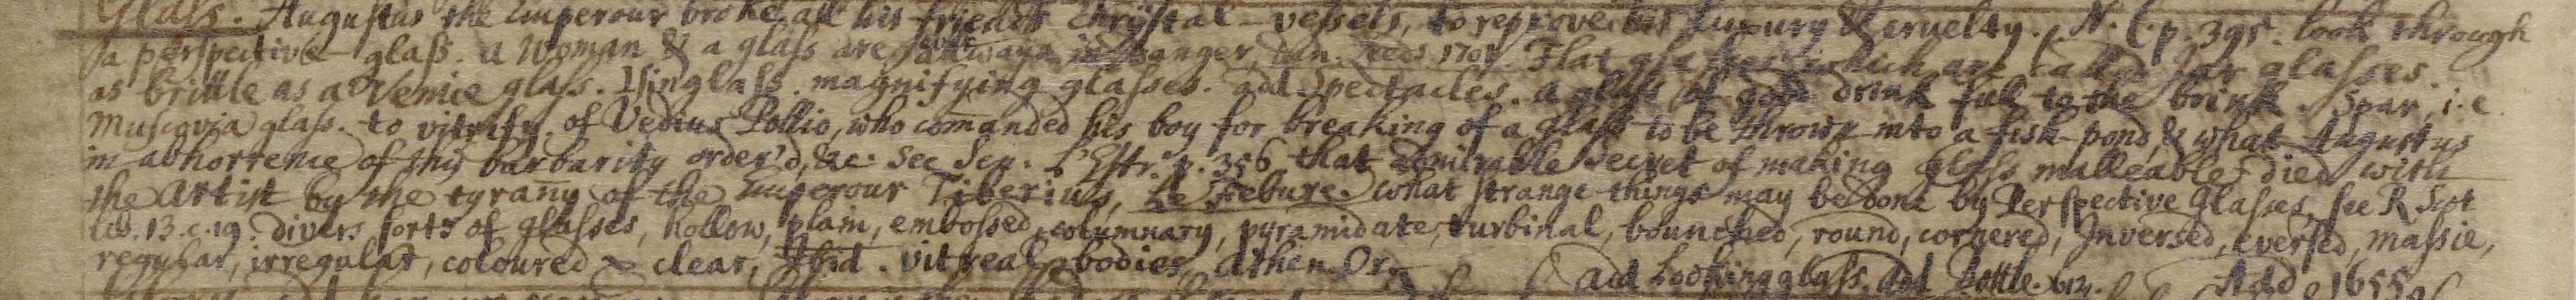 Glass. Augustus the Emperour broke all his friends Chrystal-vessels, to reprove his luxury & cruelty. N. C. p. 395. look through
a perspective-glass. a Woman & a glass are allways in danger, 1701. Flat glasses which are called Jar glasses.
as brittle as a Venice glass. Isinglass. magnifying glasses. add Spectacles. a glass of good drink full to the brink. Spar, i.e.
Muscovia glass. to vitrify. of Vedius Pollio, who comanded his boy for breaking of a glass to be thrown into a fish-pond, & what Augustus
in abhorrence of this barbarity order'd, &c. See Sen. L'Estr. p. 356. that admirable Secret of making Glass malleable died with
the Artist by the tyrany of the Emperour Tiberius, Le Febure. what strange things may be done by Perspective Glasses, see R. Scot
lib. 13. c. 19. divers sorts of glasses, hollow, plain, embossed, columnary, pyramidate, turbinal, bounched, round, cornered, Inversed, eversed, massie,
regular, irregular, coloured & clear, Ibid. vitreal bodies, Athen. Or. add Looking glass. add Bottle. Add 1655